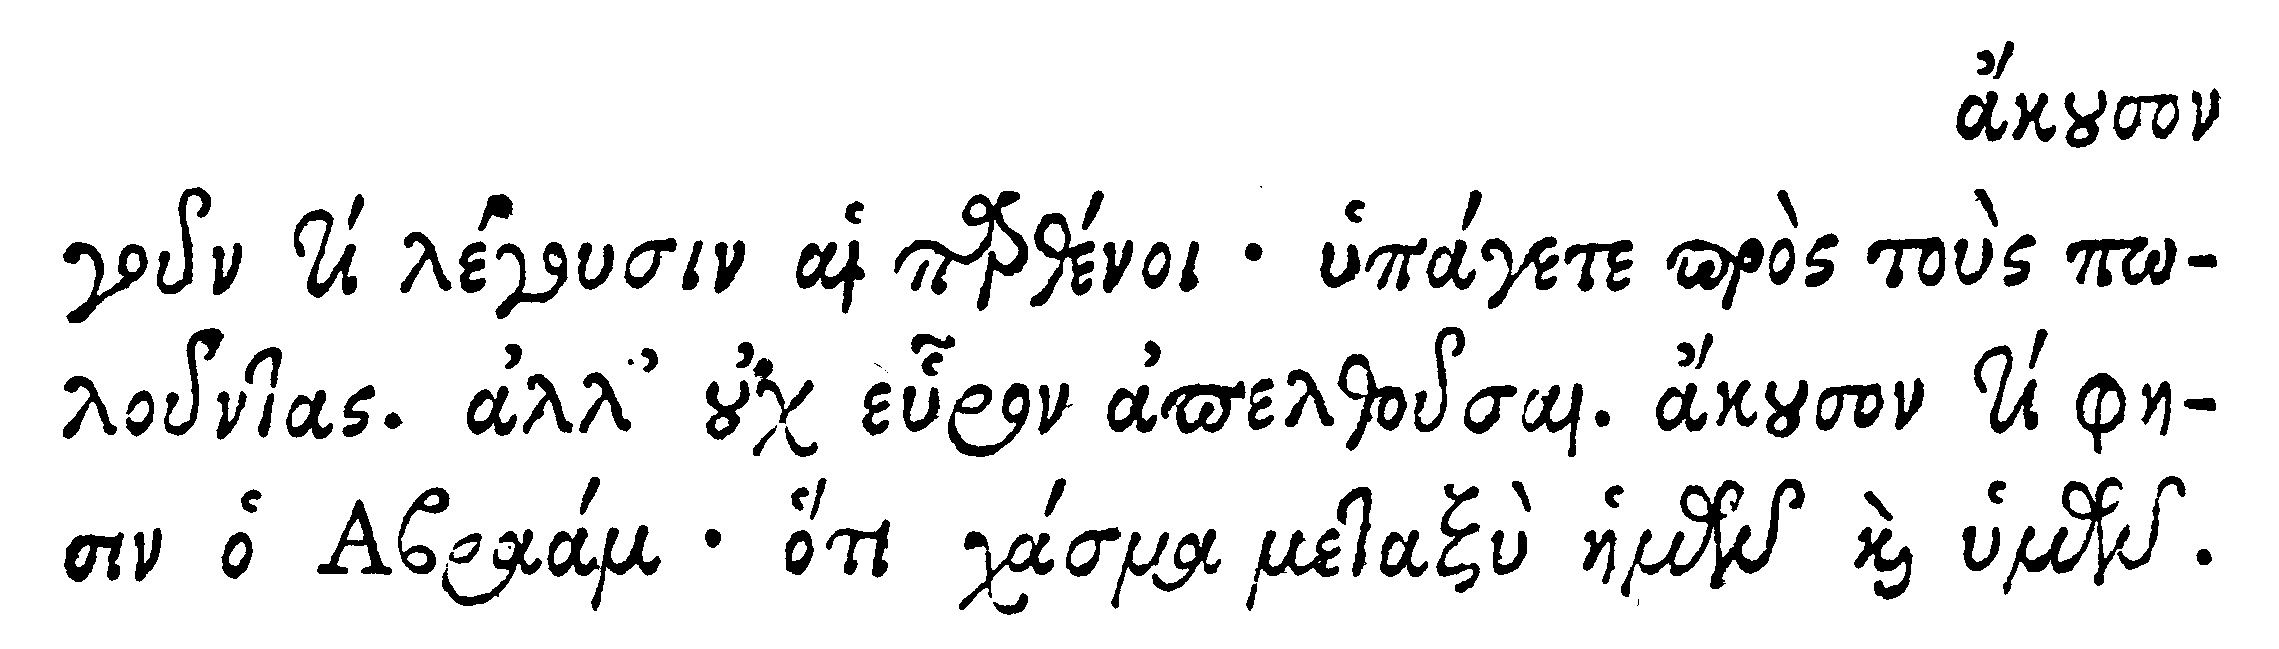 ἄκουσον
γοῦν τί λέγουσιν αἱ παρθένοι · ὑπάγετε πρὸς τοὺς πω-
λοῦντας. ἀλλ᾽ οὐχ εὗρον ἀπελθοῦσαι. ἄκουσον τί φη-
σιν ὁ Αβραάμ · ὅτι χάσμα μεταξὺ ἡμῶν καὶ ὑμῶν.